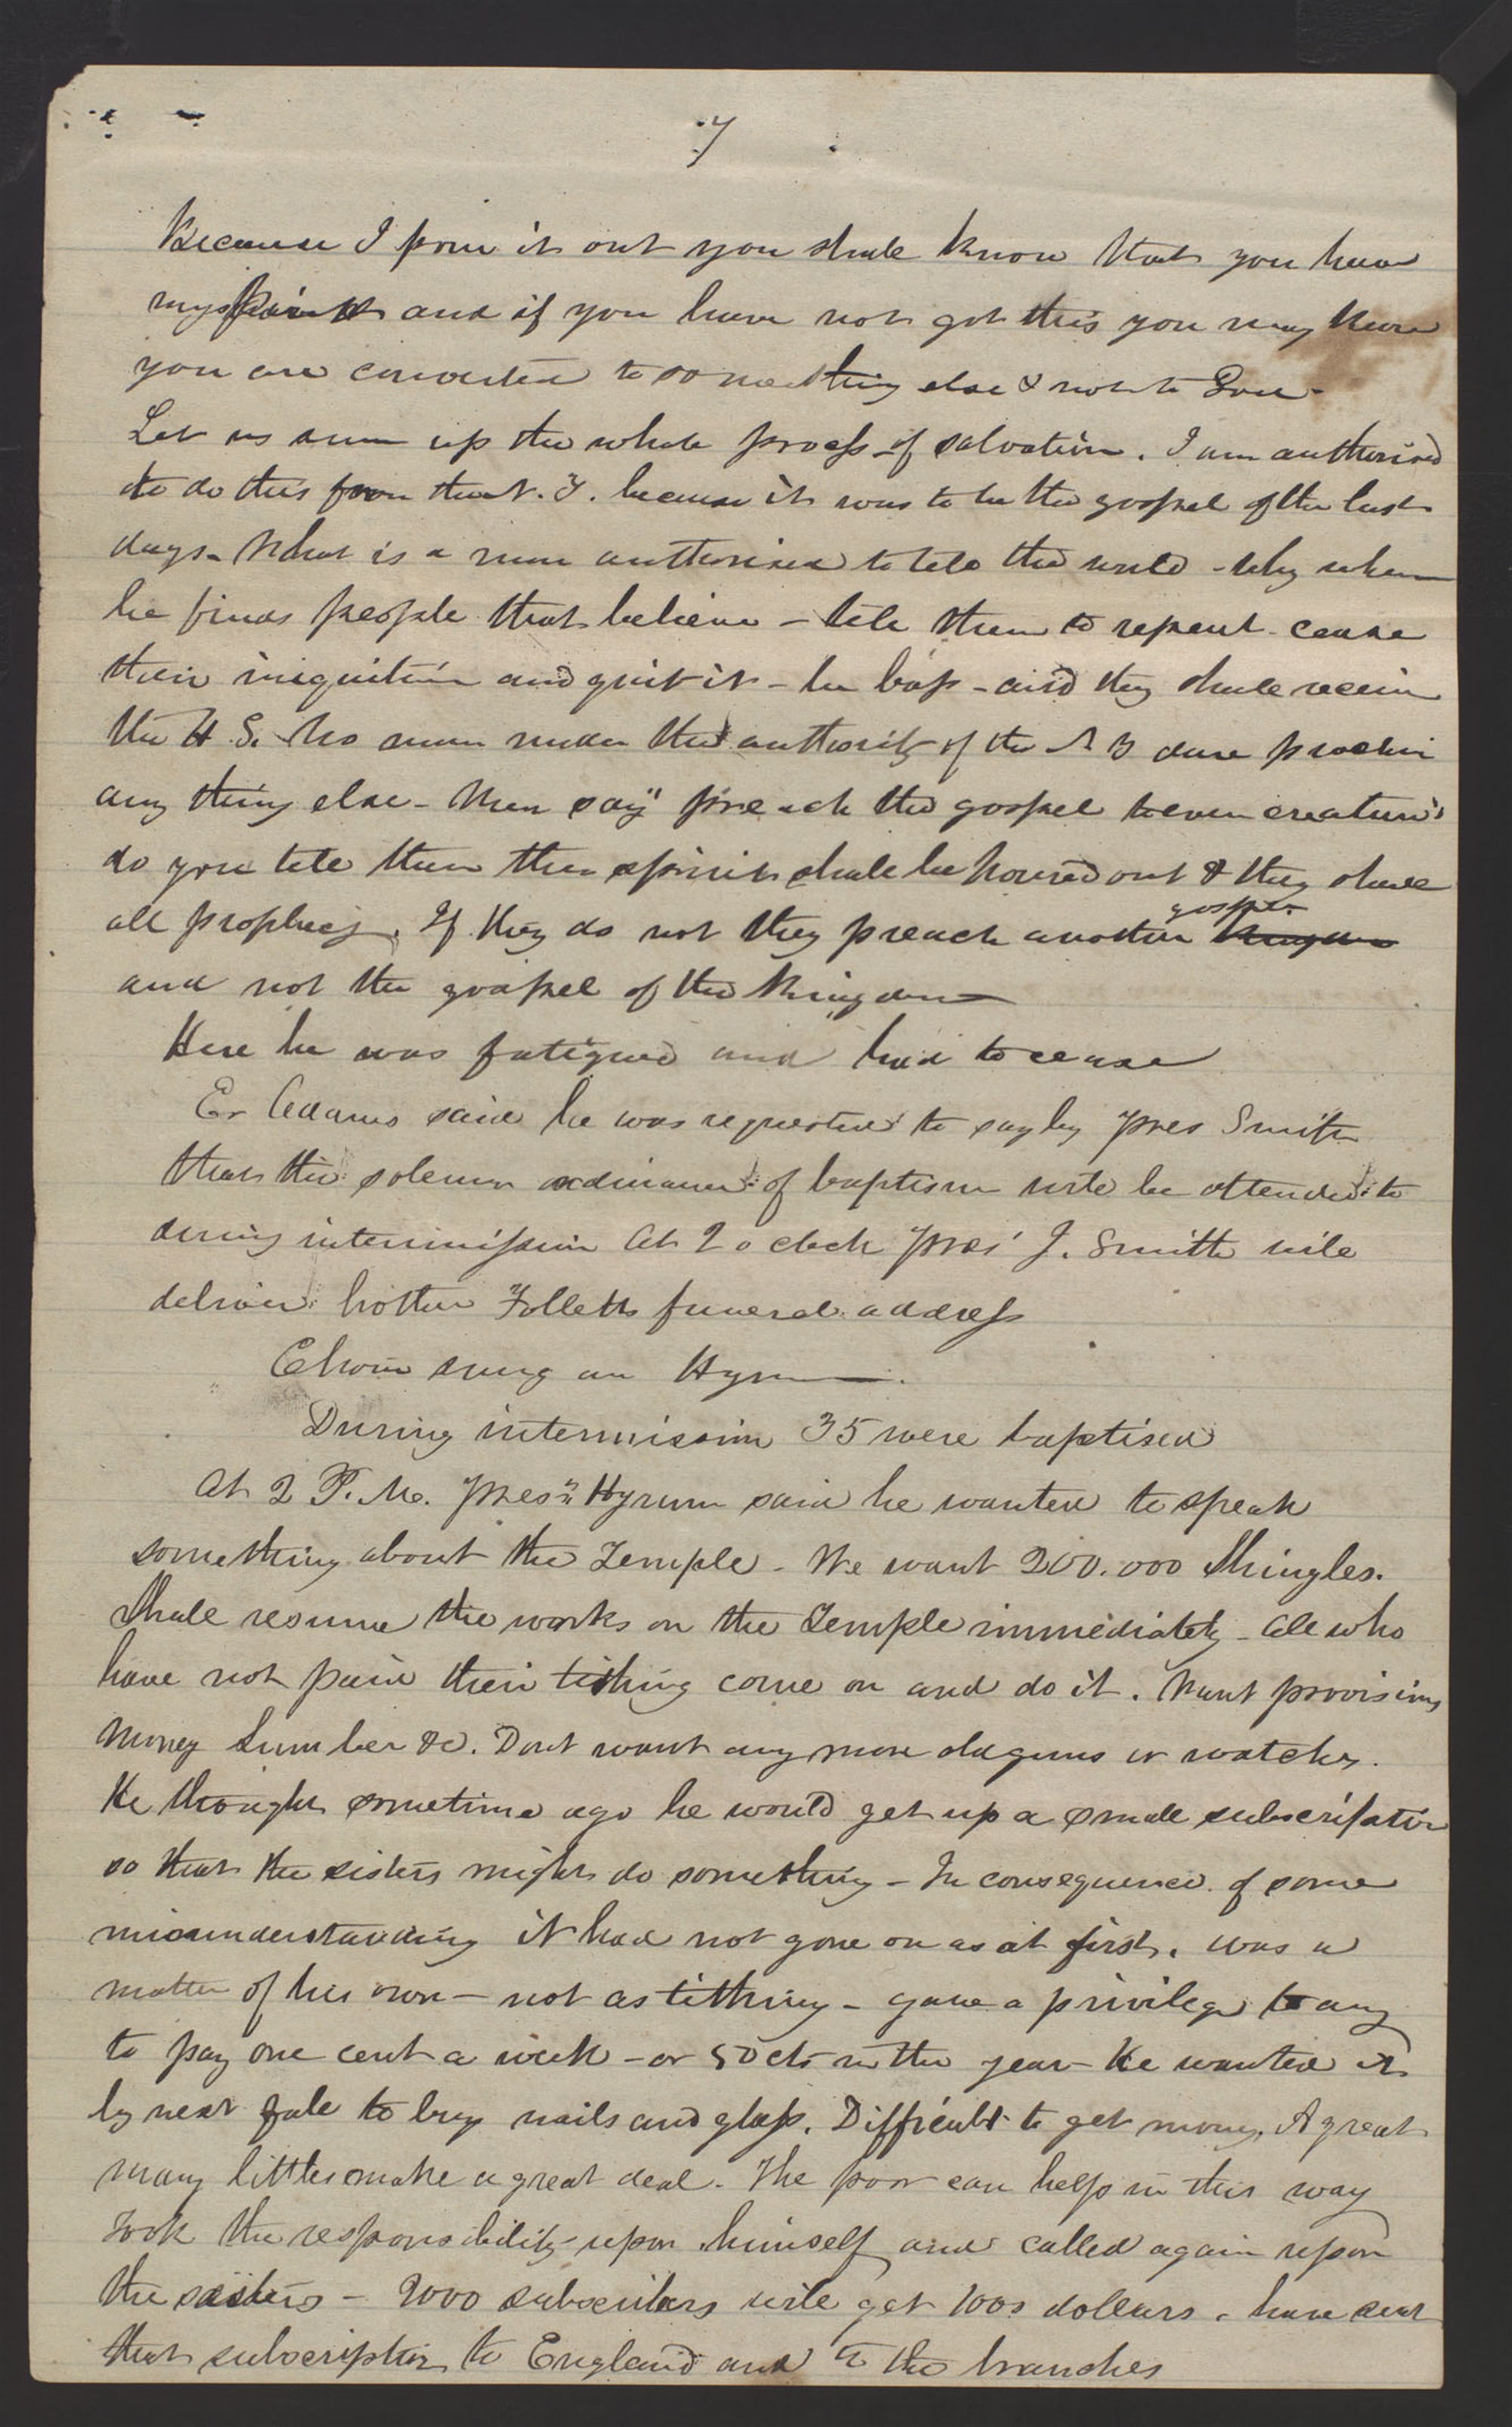 7
Because I pour it out you shall know that you have
my spirit and if you have not got this you may know
you are converted to something else & not to God -
Let us sum up the whole process of salvation. I am authorised
to do this from the N. T. because it was to be the gospel of the last
days - What is a man authorised to tell the world - why when
he finds people that believe - tell them to repent - cease
their iniquities and quit it - be bap - and they shall receive
the H. S. No man under the authority of the N T dare preach
any thing else - Men say "preach the gospel to every creature"
do you tell them the spirit shall be poured out & they shall
gospel
all prophecy. If they do not they preach another kingdom
and not the gospel of the Kingdom
Here he was fatigued and had to cease
Er Adams said he was requested to say by Pres Smith
that the solemn ordinance of baptism will be attended to
during intermission At 2 o clock Pres J. Smith will
deliver brother Folletts funeral address
Choir sung an Hymn.
During intermission 35 were baptised
At 2 P. M. Pres Hyrum said he wanted to speak
something about the Temple - We want 200.000 Shingles.
Shall resume the works on the Temple immediately - all who
have not paid their tithing come on and do it. Want provisions
Money Lumber &c. Dont want any more old guns or watches.
He thought sometime ago he would get up a small subscription
so that the sisters might do something - In consequence of some
misunderstanding it had not gone on as at first. was a
matter of his own - not as tithing - gave a privilege to any
to pay one cent a week - or 50 cts in the year - He wanted it
by next fall to buy nails and glass. Difficult to get money, A great
many littles make a great deal. The poor can help in this way
Took the responsibility upon himself and called again upon
the sisters - 2000 subscribers will get 1000 dollars. have sent
that subscription to England and to the branches